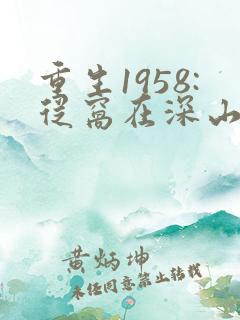 重生1958:
从窝在深山
黄炳坤
未经同意禁止转载